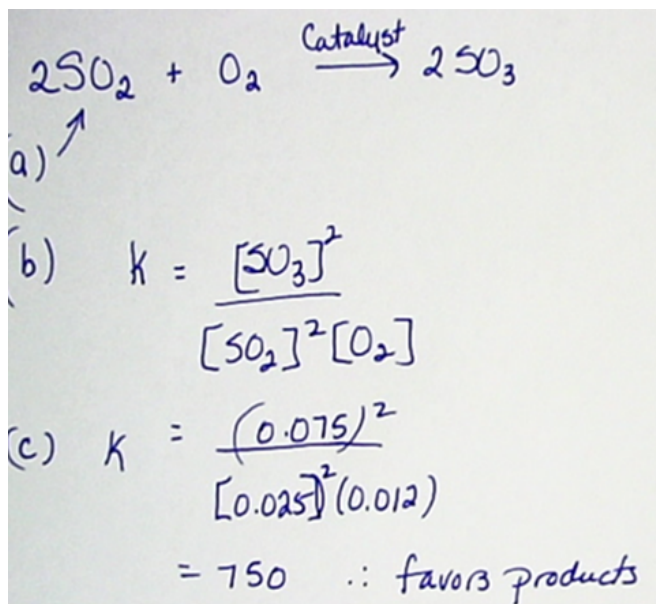 2SO₂ + O₂ Catalyst → 2SO₃
a)
(b) K = [SO₃]² / [SO₂]²[O₂]
(c) K = (0.075)² / [0.025]²(0.012)
= 750 ∴ favors products